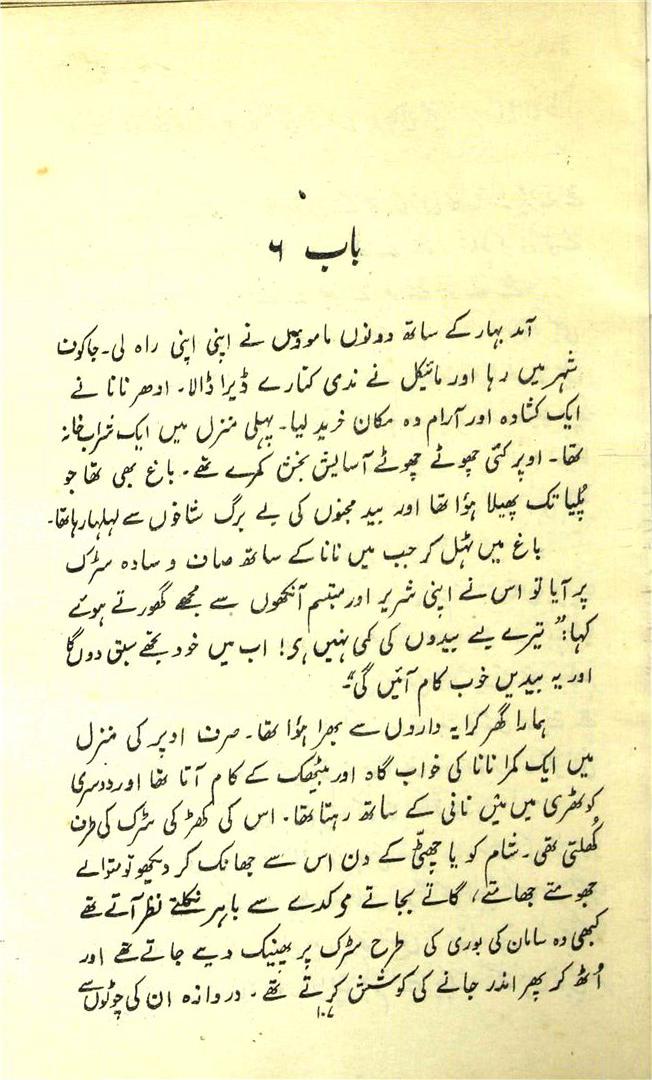 باب ۶
آمد بہار کے ساتھ دونوں ماموؤں نے اپنی اپنی راہ لی۔ جاکوف
شہر میں رہا اور مائیکل نے ندی کنارے ڈیرا ڈالا۔ ادھر نانا نے
ایک کشادہ اور آرام دہ مکان خرید لیا۔ پہلی منزل میں ایک شراب خانہ
تھا۔ اوپر کئی چھوٹے چھوٹے آسایش بخش کمرے تھے۔ باغ بھی تھا جو
پُلیا تک پھیلا ہؤا تھا اور بید مجنوں کی بے برگ شاخوں سے لہلہا رہا تھا۔
باغ میں ٹہل کر جب میں نانا کے ساتھ صاف و سادہ سڑک
پر آیا تو اس نے اپنی شریر اور متبسم آنکھوں سے مجھے گھورتے ہوئے
کہا: ”تیرے لیے بیدوں کی کمی نہیں ہی! اب میں خود تجھے سبق دوں گا
اور یہ بیدیں خوب کام آئیں گی“۔
ہمارا گھر کرایہ داروں سے بھرا ہؤا تھا۔ صرف اوپر کی منزل
میں ایک کمرا نانا کی خواب گاہ اور بیٹھک کے کام آتا تھا اور دوسری
کوٹھری میں میں نانی کے ساتھ رہتا تھا۔ اس کی کھڑ کی سڑک کی طرف
کھُلتی تھی۔ شام کو یا چھٹی کے دن اس سے جھانک کر دیکھو تو متوالے
جھومتے جھامتے، گاتے بجاتے می کدے سے باہر نکلتے نظر آتے تھے
کبھی وہ سامان کی بوری کی طرح سڑک پر پھینک دیے جاتے تھے اور
اُٹھ کر پھر اندر جانے کی کوشش کرتے تھے۔ دروازہ ان کی چوٹوں سے
۱۰۷